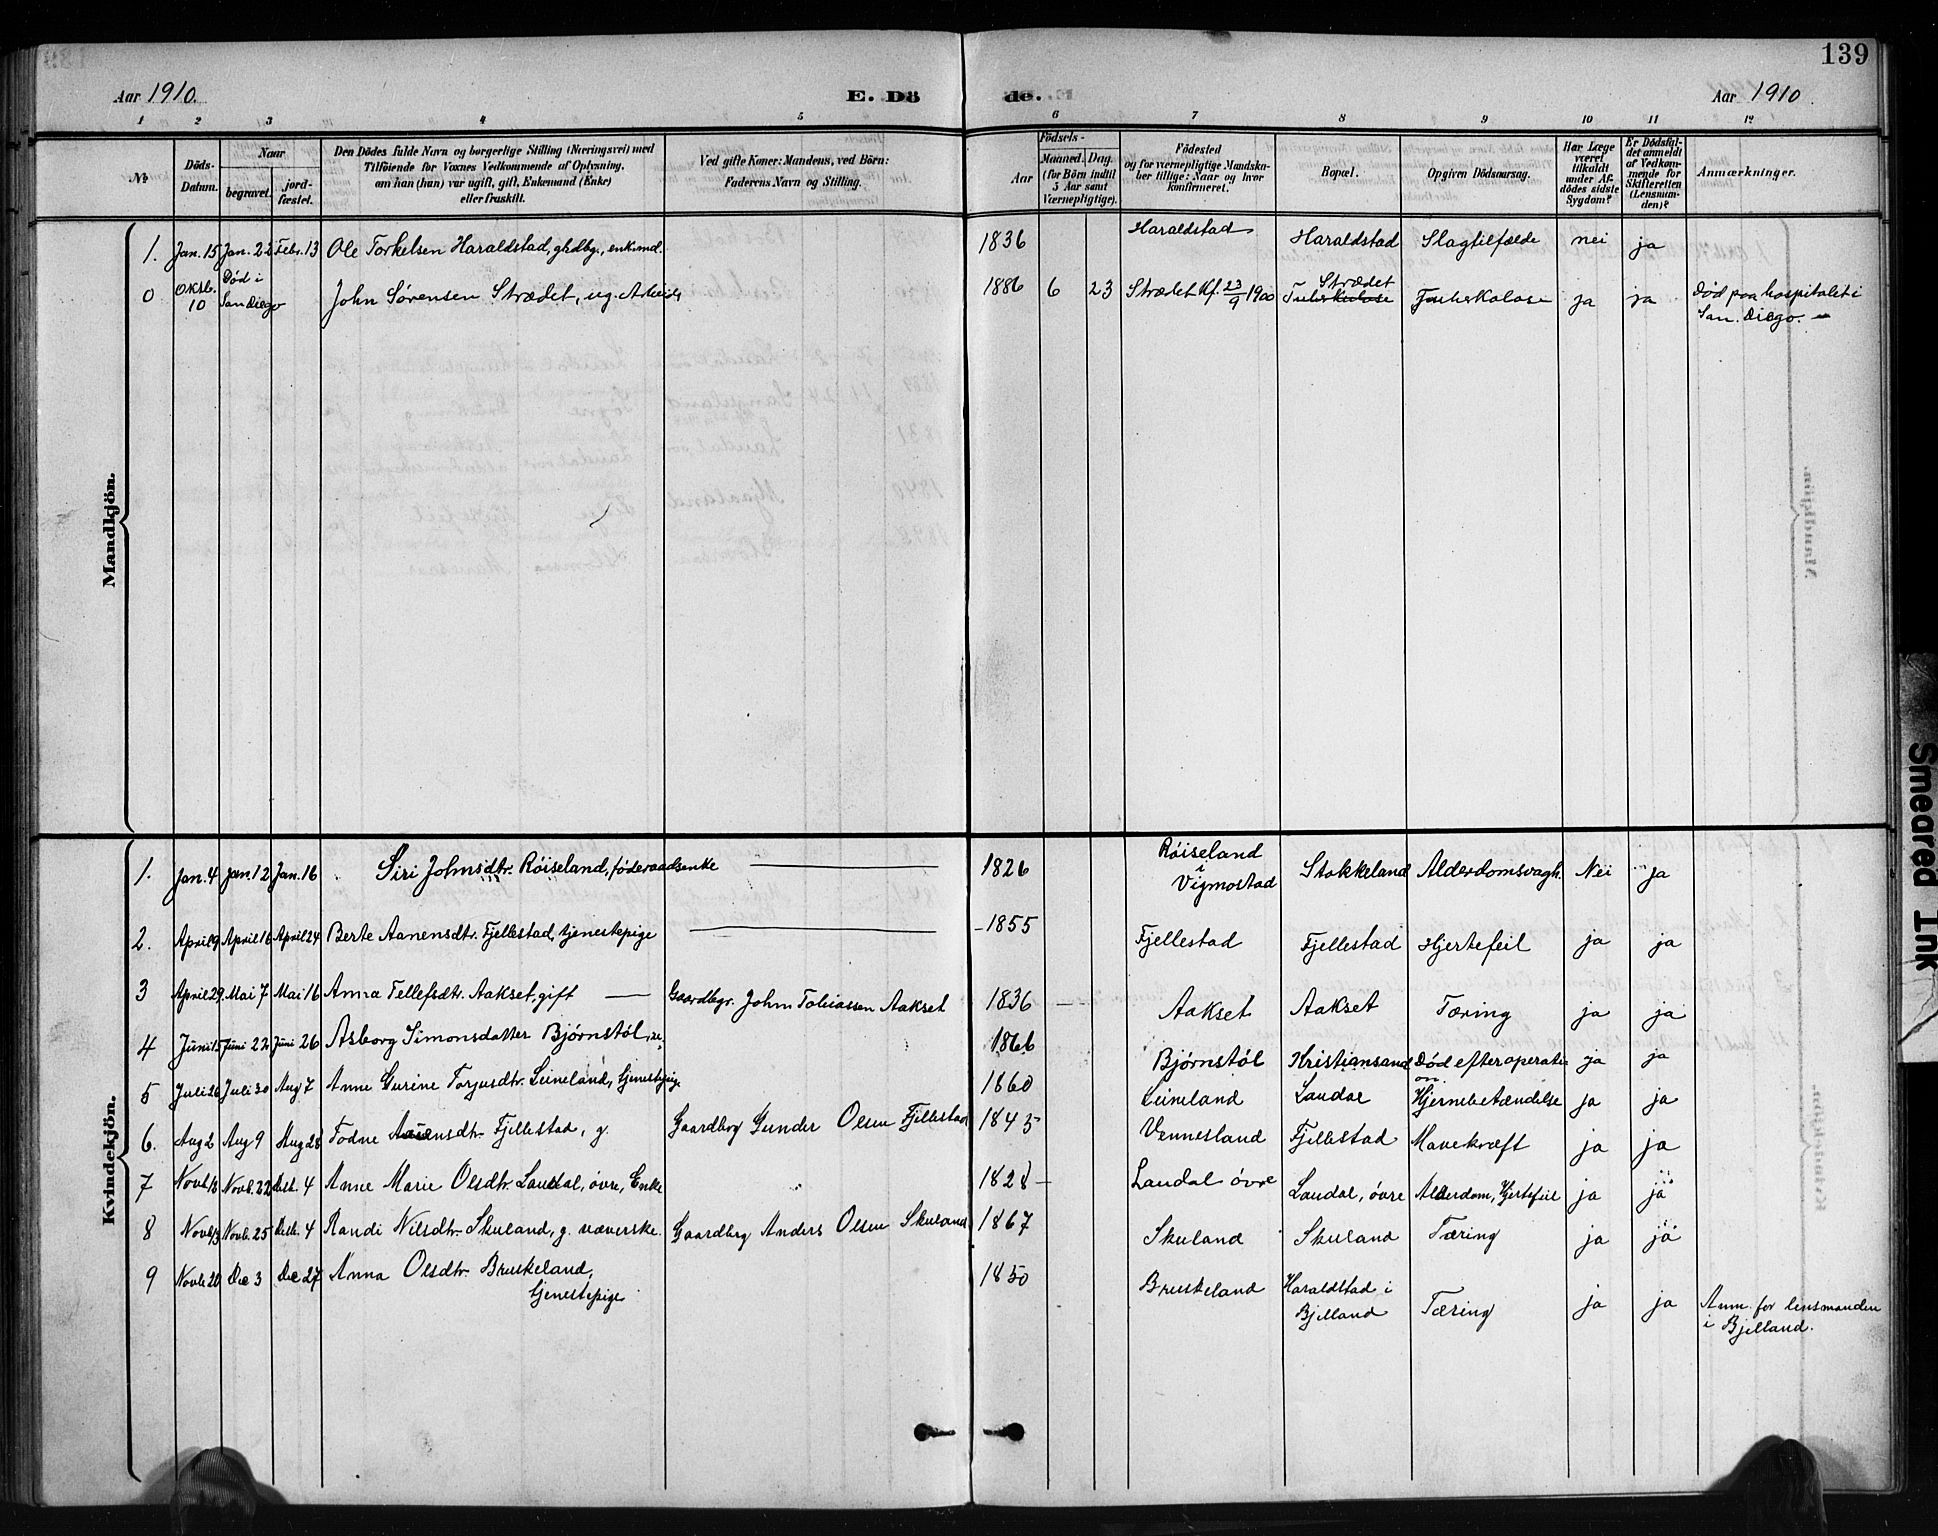 139
Aar 1910. E. Dö de. Aar 1910.
1 2 3 4 5 6 7 8 9 10 11 12
№ Döds-Datum. Naar begravet. jordfæstet. Den Dödes fulde Navn og borgerlige Stilling (Næringsvei) med Tilföiende for Voxnes Vedkommende af Oplysning, om han (hun) var ugift, gift, Enkemand (Enke) eller fraskilt. Ved gifte Koner: Mandens, ved Börn: Faderens Navn og Stilling. Födsels- Aar Maaned. Dag. (for Börn indtil 5 Aar samt Værnepligtige). Födested og for værnepligtige Mandskaber tillige: Naar og hvor konfirmeret. Bopæl. Opgiven Dödsaarsag. Har Læge været tilkaldt under Afdödes sidste Sygdom? Er Dödsfaldet anmeldt af Vedkommende for Skifteretten (Lensmanden)? Anmærkninger.
Mandkjön.
1. Jan. 15 Jan. 22 Febr. 13 Ole Torkelsen Haraldstad, gbdbg., enkemd. 1836 Haraldstad Haraldstad Slagtilfælde nei ja
0 Oktb. 10 Død i San Diego John Sørensen Strædet, ug. Arbeider 1886 6 23 Strædet Kf. 23/9 1900 Strædet Tuberkulose Tuberkolose ja ja Død paa hospitalet i San. Diego. —
Kvindekjön.
1. Jan. 4 Jan. 12 Jan. 16 Siri Johnsdtr. Røiseland, føderaadsenke 1826 Røiseland i Vigmostad Stokkeland Alderdomsvagh. Nei ja
2. April 9 April 16 April 24 Berte Aanensdtr. Fjellestad, tjenestepige 1855 Fjellestad Fjellestad Hjertefeil ja ja
3 April 29 Mai 7 Mai 16 Anna Tellefsdtr. Aakset, gift Gaardbgr. John Tobiassen Aakset 1836 Aakset Aakset Tæring ja ja
4 Juni 15 Juni 22 Juni 26 Asborg Simonsdatter Bjørnstøl, 1866 Bjørnstøl Kristiansand Død efter operation. ja ja
5 Juli 26 Juli 30 Aug 7 Anne Gurine Torjusdtr. Leineland, tjenestepige 1860 Leineland Laudal Hjernebetændelse ja ja
6. Aug 2 Aug 9 Aug 28 Todne Aasensdtr. Fjellestad, g. Gaardbrg Gunder Olsen Fjellestad 1845 Vennesland Fjellestad Mavekræft ja ja
7 Novb. Novb. 22 Decb. 4 Anne Marie Olsdtr. Laudal, øvre, Enke 1828 Laudal øvre Laudal, øvre Alderdom, Hjertefeil ja ja
8 Novb. Novb. 25 Decb. 4 Randi Nilsdtr. Skuland, g. væverske. Gaardbrg Anders Olsen Skuland 1867 Skuland Skuland Tæring ja ja
9 Novb 20 Dec 3 Dec 27 Anna Olsdtr. Bruskeland, tjenestepige 1850 Bruskeland Haraldstad i Bjelland Tæring ja ja Anm. for lensmanden i Bjelland.
Smeared Ink